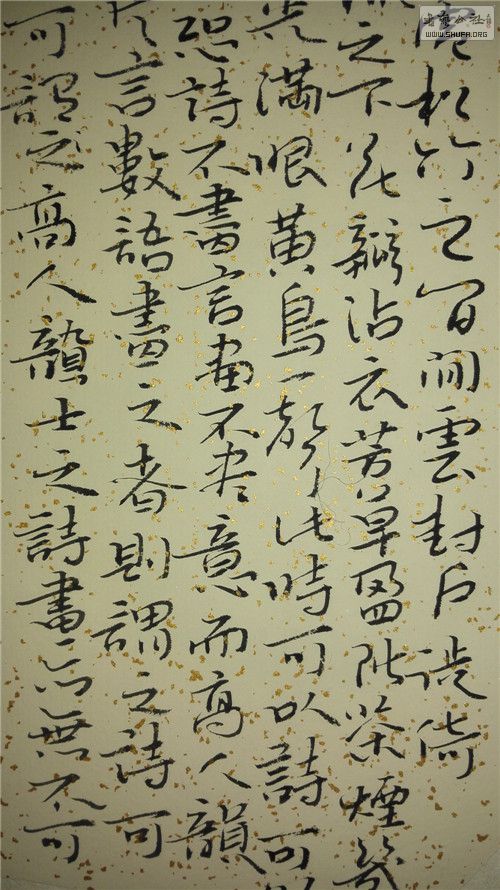 廬松竹之間閒雲封户徙倚
之下花瓣沾衣芳草盈階茶煙幾
光滿眼黃鳥一聲此時可以詩可
恐詩不盡言畫不尽意而高人韻
片言數語盡之者則謂之詩可
可謂之高人韻士之詩畫亦無不可
書藝公社
WWW.SHUFA.ORG